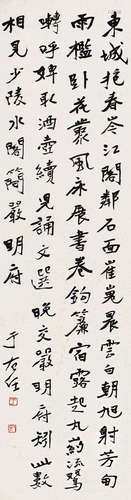 東城抱春岑江閣鄰石面崔嵬晨雲白朝旭射芳甸
雨檻卧花叢風床展書卷鉤簾宿鷺起丸藥流鶯
囀呼婢取酒壺續兒誦文選晚交嚴明府矧此數
相見少陵水閣簡嚴明府
于右任